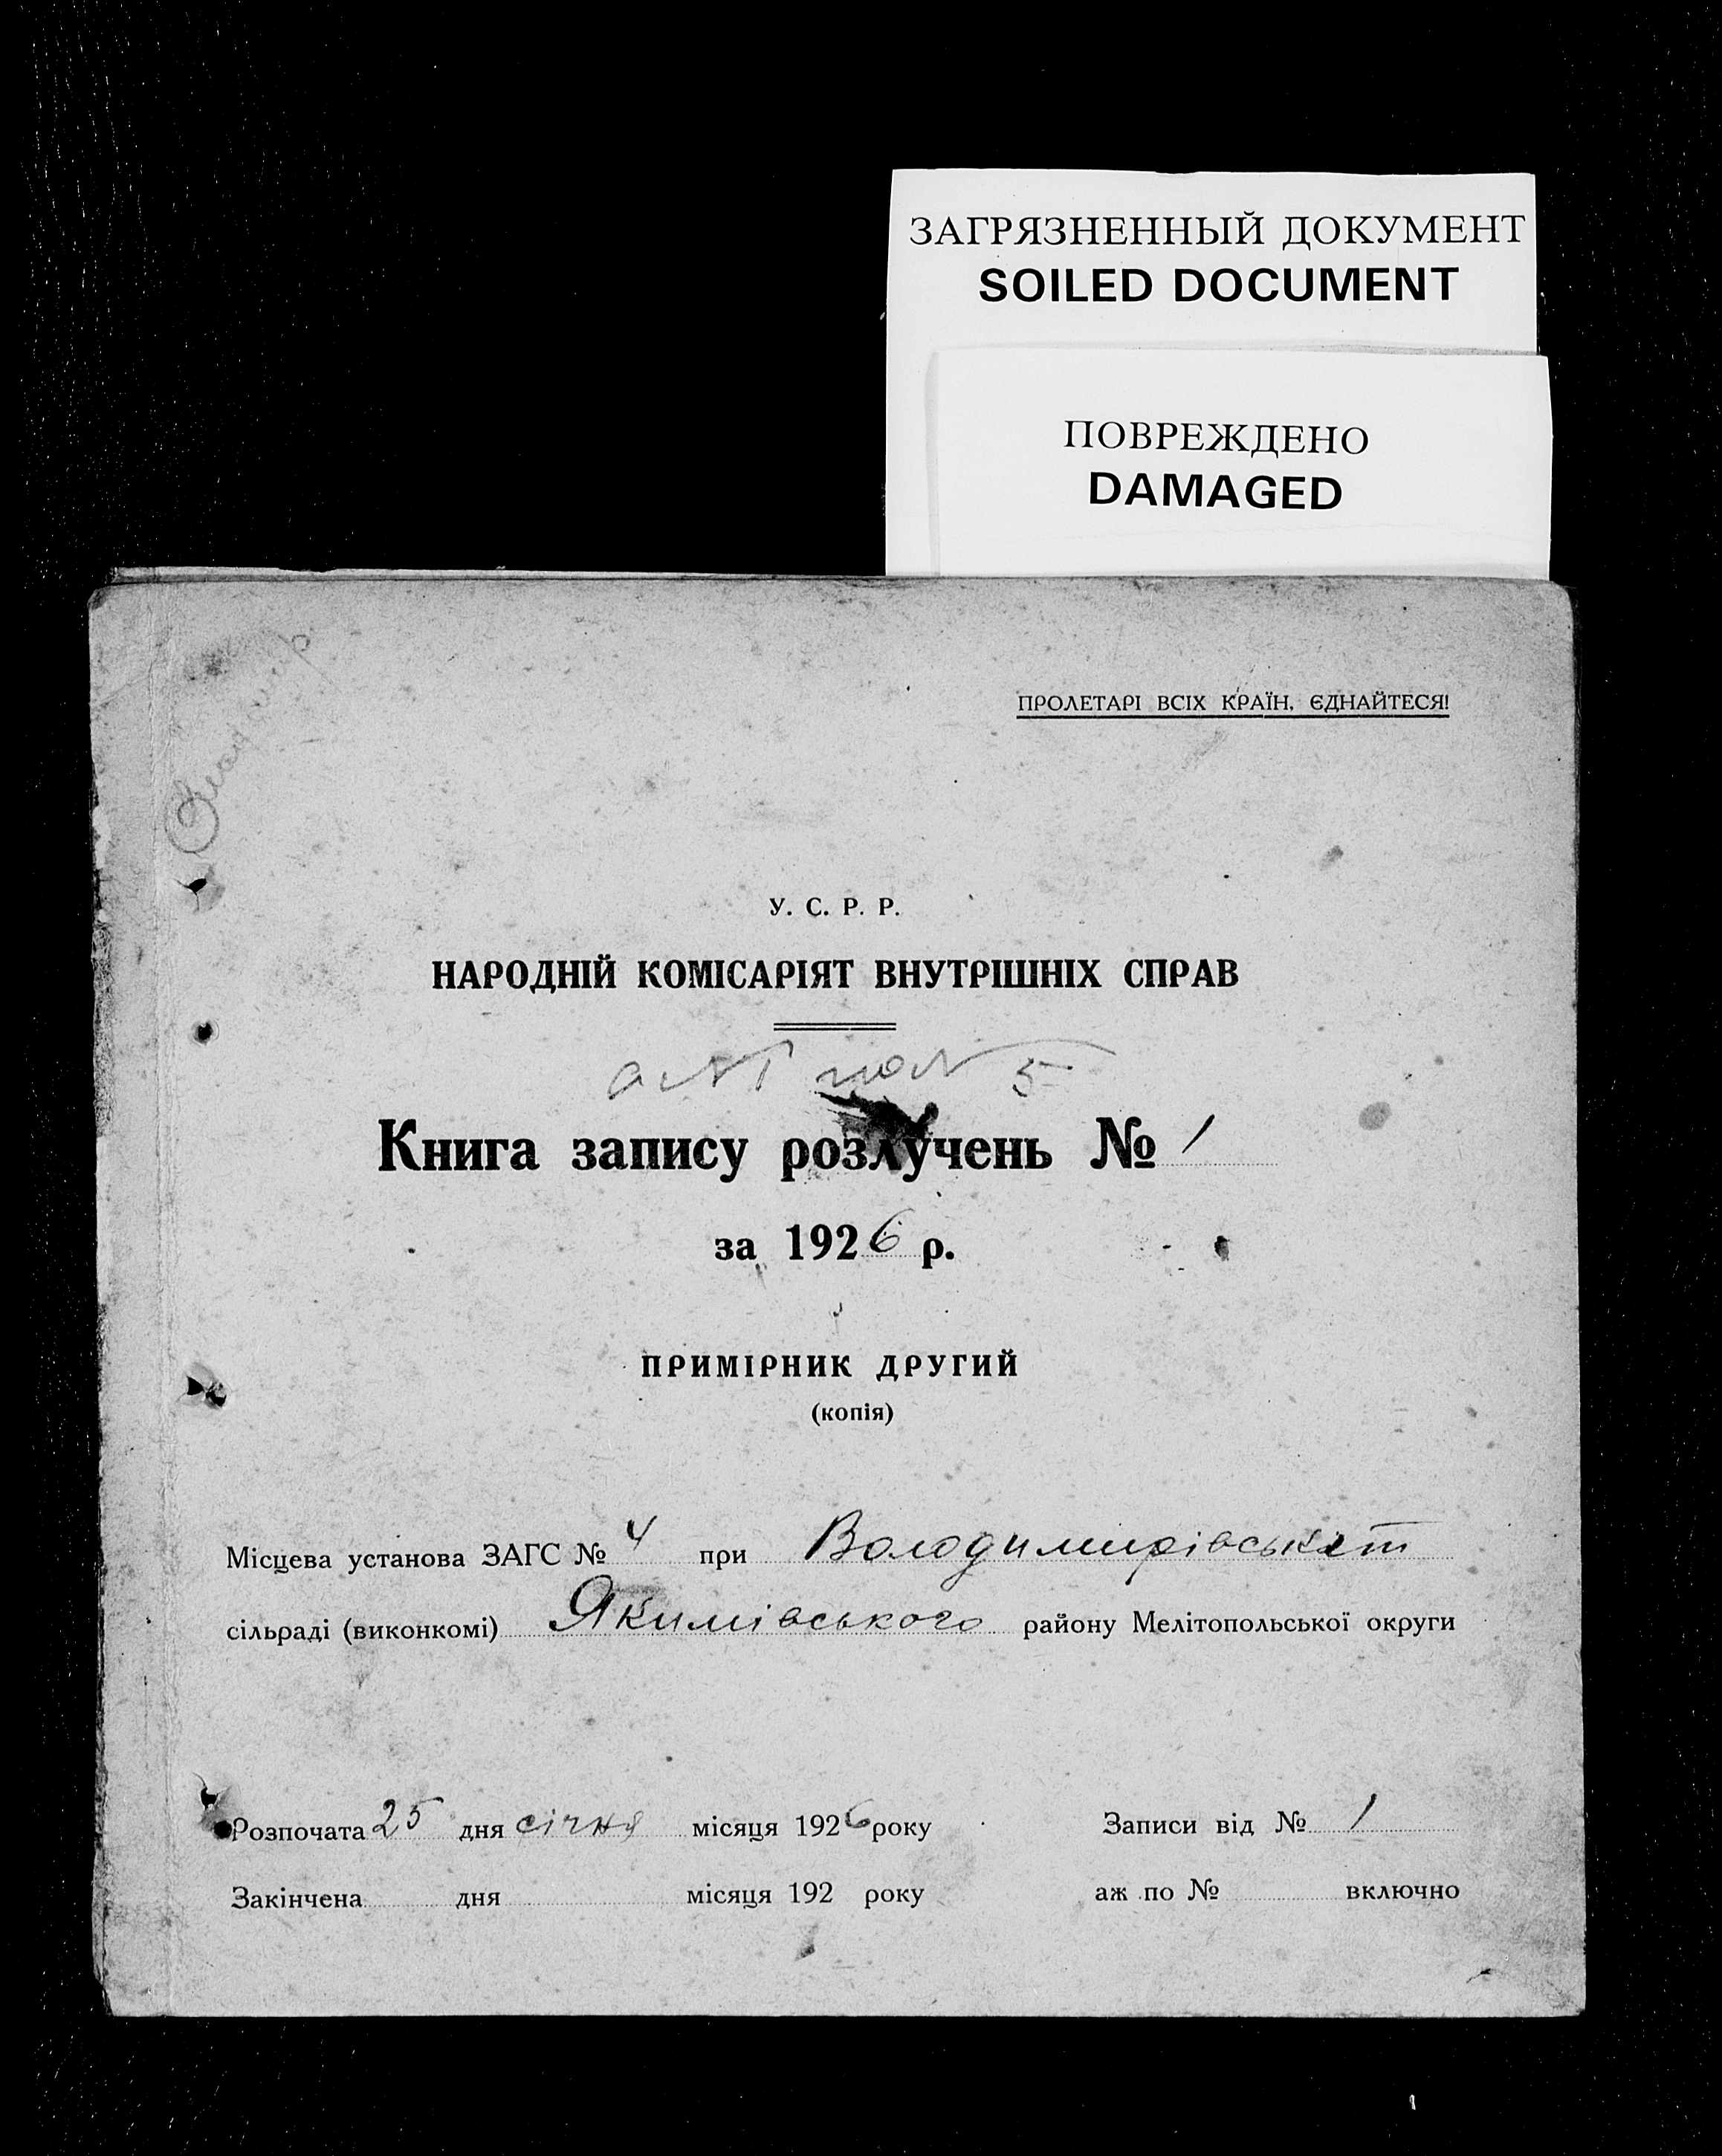 ЗАГРЯЗНЕННЫЙ ДОКУМЕНТ
SOILED DOCUMENT
ПОВРЕЖДЕНО
DAMAGED
ПРОЛЕТАРІ ВСІХ КРАЇН, ЄДНАЙТЕСЯ!
У. С. Р. Р.
НАРОДНІЙ КОМІСАРІЯТ ВНУТРІШНІХ СПРАВ
5
Книга запису розлучень № 1
за 1926 р.
ПРИМІРНИК ДРУГИЙ
(копія)
Місцева установа ЗАГС № 4 при
сільраді (виконкомі) Якимівського району Мелітопольської округи
Розпочата 25 дня січня місяця 1926 року Записи від № 1
Закінчена дня місяця 192 року аж по № включно